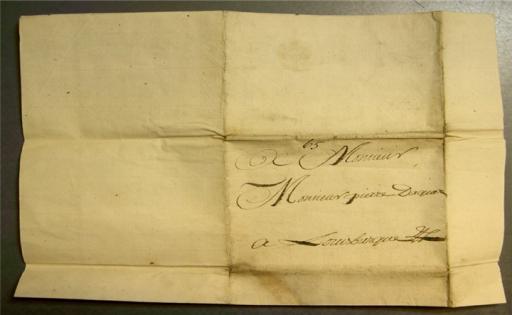 65
A Monsieur
Monsieur pierre
a Louisbourg